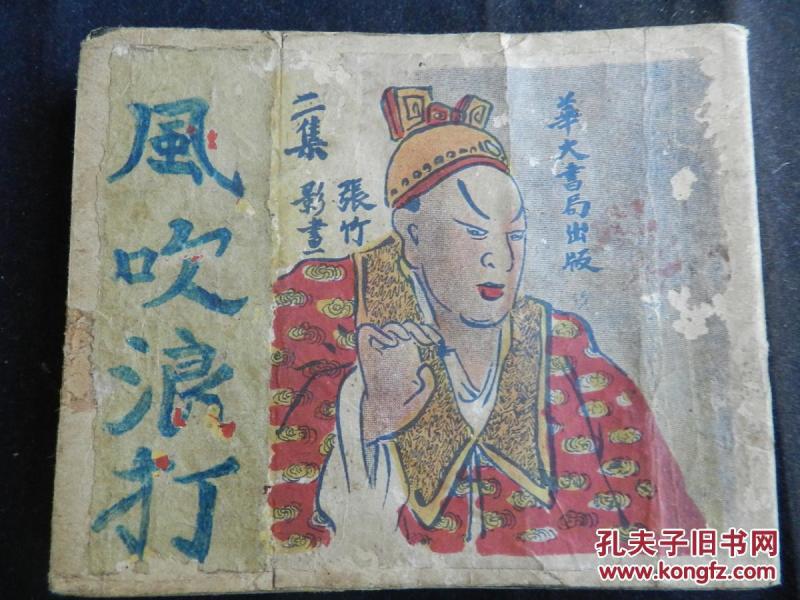 風吹浪打
二集
張竹影畫
華大書局出版
孔夫子旧书网
www.kongfz.com